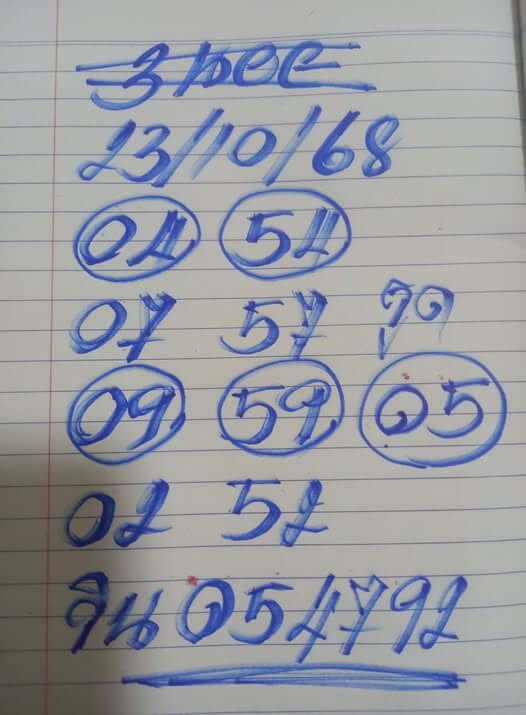 23/10/68
04 54
07 57 รูด
09 59 05
02 52
วิน 054792